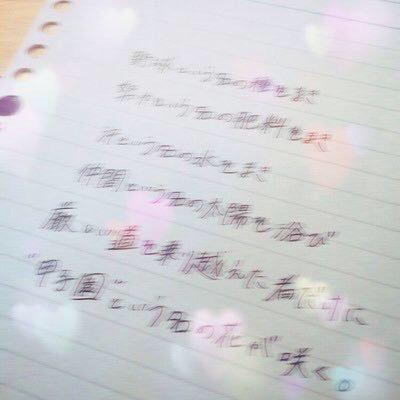 野球という名の種をまき
努力という名の肥料をまき
汗という名の水をまき
仲間という名の太陽を浴び
厳しい道を乗り越えた者だけに
"甲子園"という名の花が咲く。